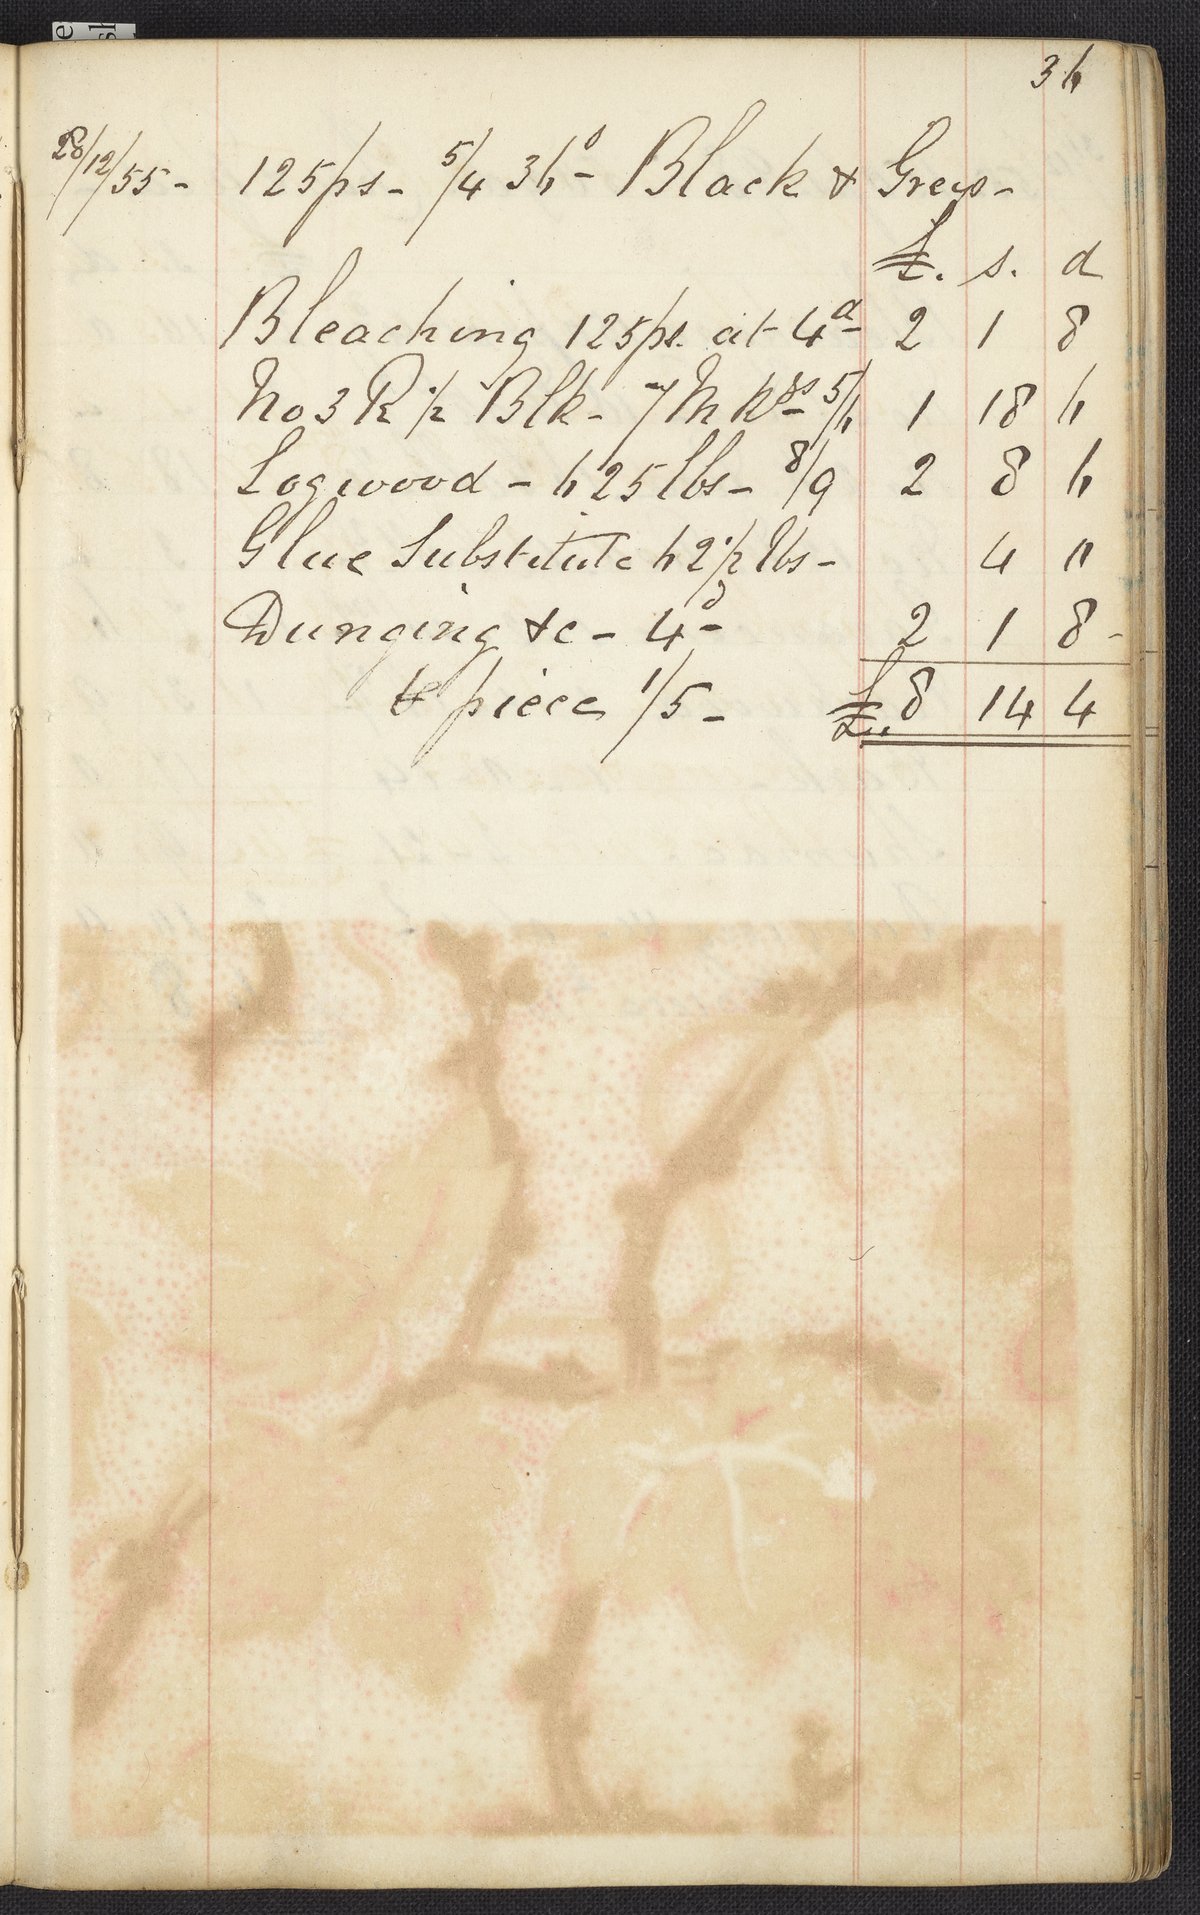 36
28/12/55 - 125 ps - 5/4 36s - Black & Greys -
£. s. d
Bleaching 125 ps. at 4d - 2 1 8
No 3 R ½ Blk - 7 5/6 1 18 6
Logwood - 625 lbs - 8/9 2 8 6
Glue Substitute 62½ lbs - 4 "
Dunging &c - 4d - 2 1 8 -
⅌ piece 1/5 - £ 8 14 4